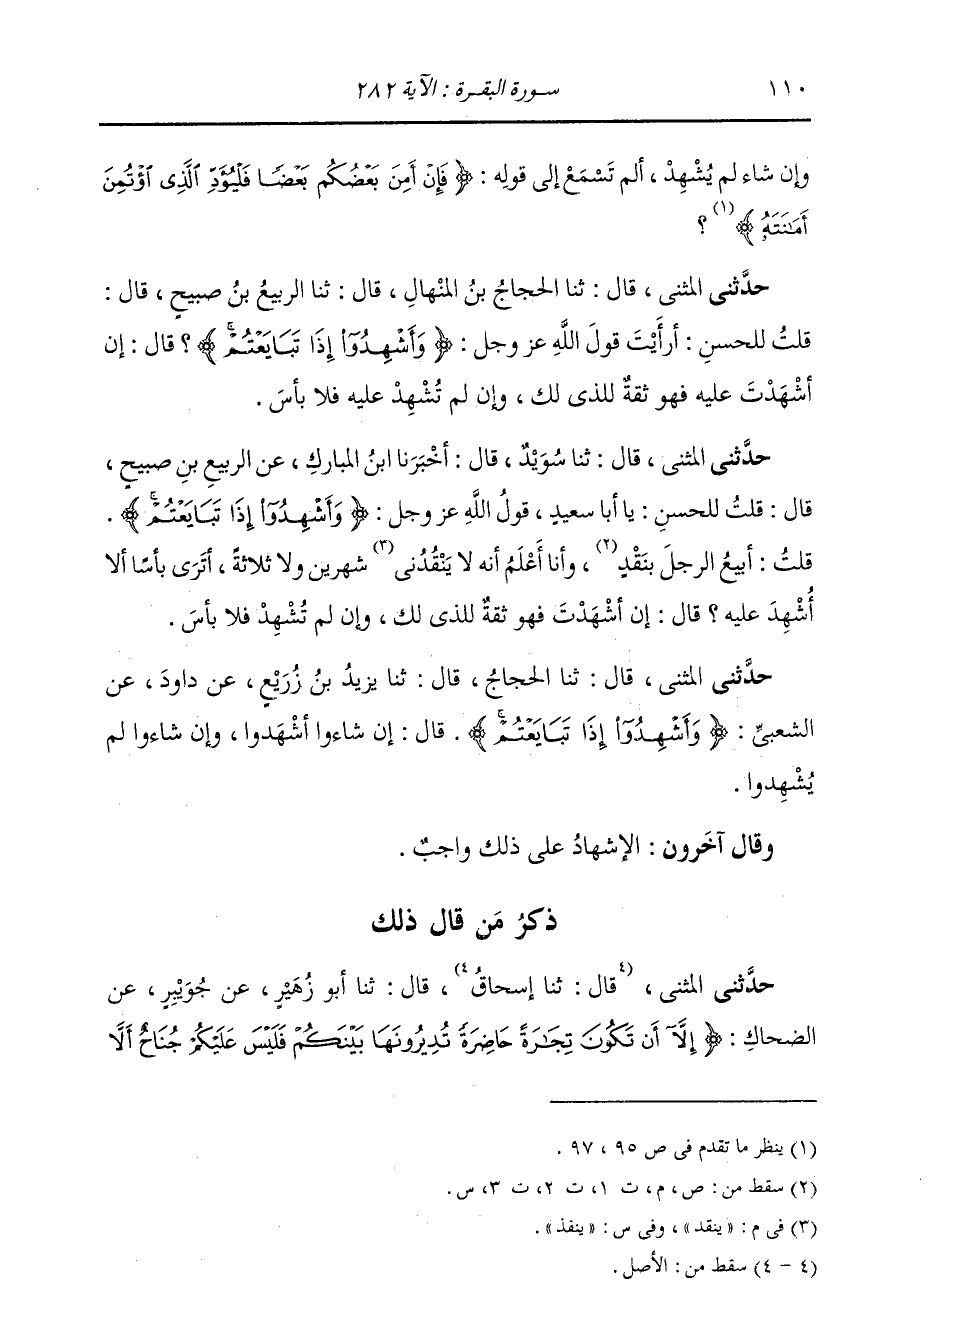 ١١٠ سورة البقرة : الآية ٢٨٢
وإن شاء لم يُشْهِدْ ، ألم تَسْمَعْ إلى قولِه : ﴿ فَإِنْ أَمِنَ بَعْضُكُم بَعْضًا فَلْيُؤَدِّ ٱلَّذِى ٱؤْتُمِنَ
أَمَٰنَتَهُۥ ﴾(١) ؟
حدَّثنى المثنى ، قال : ثنا الحجاجُ بنُ المنْهالِ ، قال : ثنا الربيعُ بنُ صبيحٍ ، قال :
قلتُ للحسنِ : أرأَيْتَ قولَ اللَّهِ عز وجل : ﴿ وَأَشْهِدُوٓا۟ إِذَا تَبَايَعْتُمْۚ ﴾ ؟ قال : إن
أشْهَدْتَ عليه فهو ثقةٌ للذى لك ، وإن لم تُشْهِدْ عليه فلا بأسَ .
حدَّثنى المثنى ، قال : ثنا سُوَيْدٌ ، قال : أخْبَرَنا ابنُ المباركِ ، عن الربيعِ بنِ صبيحٍ ،
قال : قلتُ للحسنِ : يا أبا سعيدٍ ، قولُ اللَّهِ عز وجل : ﴿ وَأَشْهِدُوٓا۟ إِذَا تَبَايَعْتُمْۚ ﴾ .
قلتُ : أبيعُ الرجلَ بنَقْدٍ(٢) ، وأنا أَعْلَمُ أنه لا يَنْقُدُنى(٣) شهرين ولا ثلاثةً ، أتَرَى بأسًا ألا
أُشْهِدَ عليه ؟ قال : إن أشْهَدْتَ فهو ثقةٌ للذى لك ، وإن لم تُشْهِدْ فلا بأسَ .
حدَّثنى المثنى ، قال : ثنا الحجاجُ ، قال : ثنا يزيدُ بنُ زُرَيْعٍ ، عن داودَ ، عن
الشعبىِّ : ﴿ وَأَشْهِدُوٓا۟ إِذَا تَبَايَعْتُمْۚ ﴾ . قال : إن شاءوا أشْهَدوا ، وإن شاءوا لم
يُشْهِدوا .
وقال آخَرون : الإشهادُ على ذلك واجبٌ .
ذكرُ مَن قال ذلك
حدَّثنى المثنى ، (٤قال : ثنا إسحاقُ٤) ، قال : ثنا أبو زُهَيْرٍ ، عن جُوَيْبِرٍ ، عن
الضحاكِ : ﴿ إِلَّآ أَن تَكُونَ تِجَٰرَةً حَاضِرَةً تُدِيرُونَهَا بَيْنَكُمْ فَلَيْسَ عَلَيْكُمْ جُنَاحٌ أَلَّا
(١) ينظر ما تقدم فى ص ٩٥ ، ٩٧ .
(٢) سقط من : ص ، م ، ت ١ ، ت ٢ ، ت ٣ ، س .
(٣) فى م : « ينقد » ، وفى س : « ينفذ » .
(٤ - ٤) سقط من : الأصل .